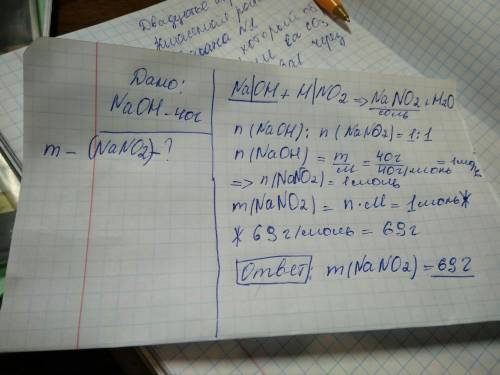 Двадцатое
Классная
N1
который
Дано:
NaOH - 40г
m - (NaNO2) - ?
Na|OH + H|NO2 => NaNO2 + H2O
соль
n (NaOH) : n (NaNO2) = 1:1
n (NaOH) = m/M = 40г/40г/моль = 1моль
=> n(NaNO2) = 1моль
m(NaNO2) = n · M = 1моль *
* 69г/моль = 69г
Ответ: m(NaNO2) = 69г